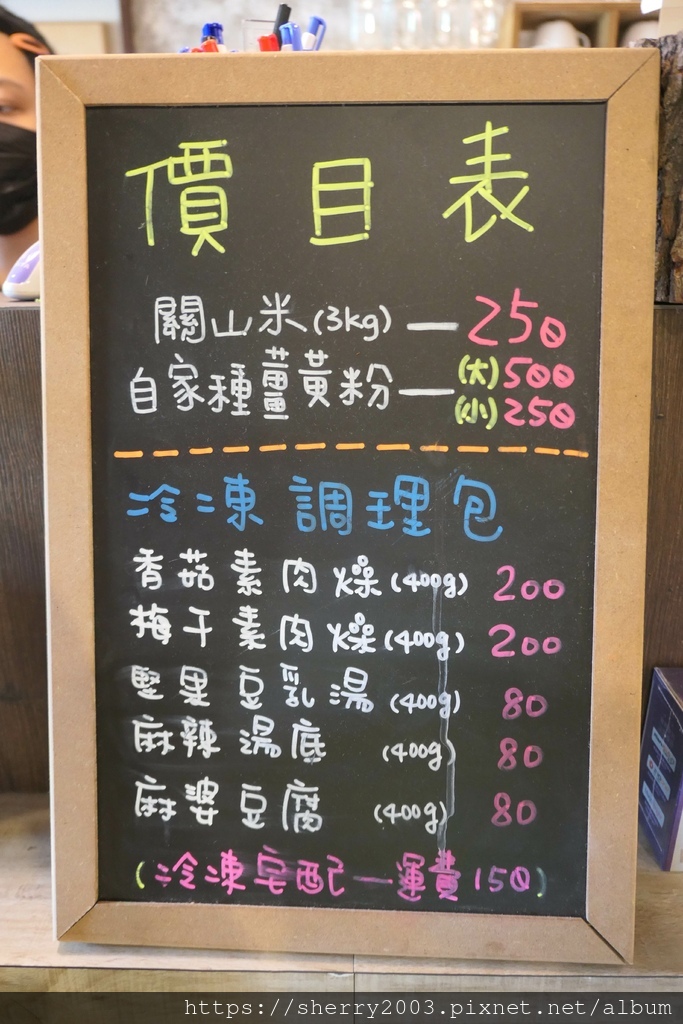 價目表
關山米(3kg) — 250
自家種薑黃粉 — (大) 500
(小) 250
冷凍調理包
香菇素肉燥(400g) 200
梅干素肉燥(400g) 200
堅果豆乳湯(400g) 80
麻辣湯底(400g) 80
麻婆豆腐(400g) 80
(冷凍宅配—運費150)
https://sherry2003.pixnet.net/album